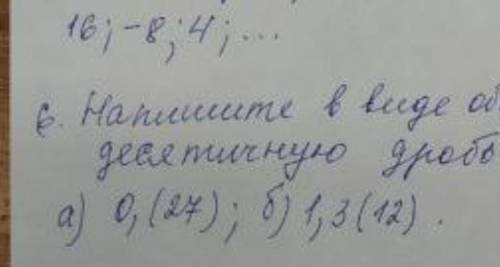 16; -8; 4; ...
6. Напишите в виде об
десятичную дробь
а) 0,(27); б) 1,3(12).